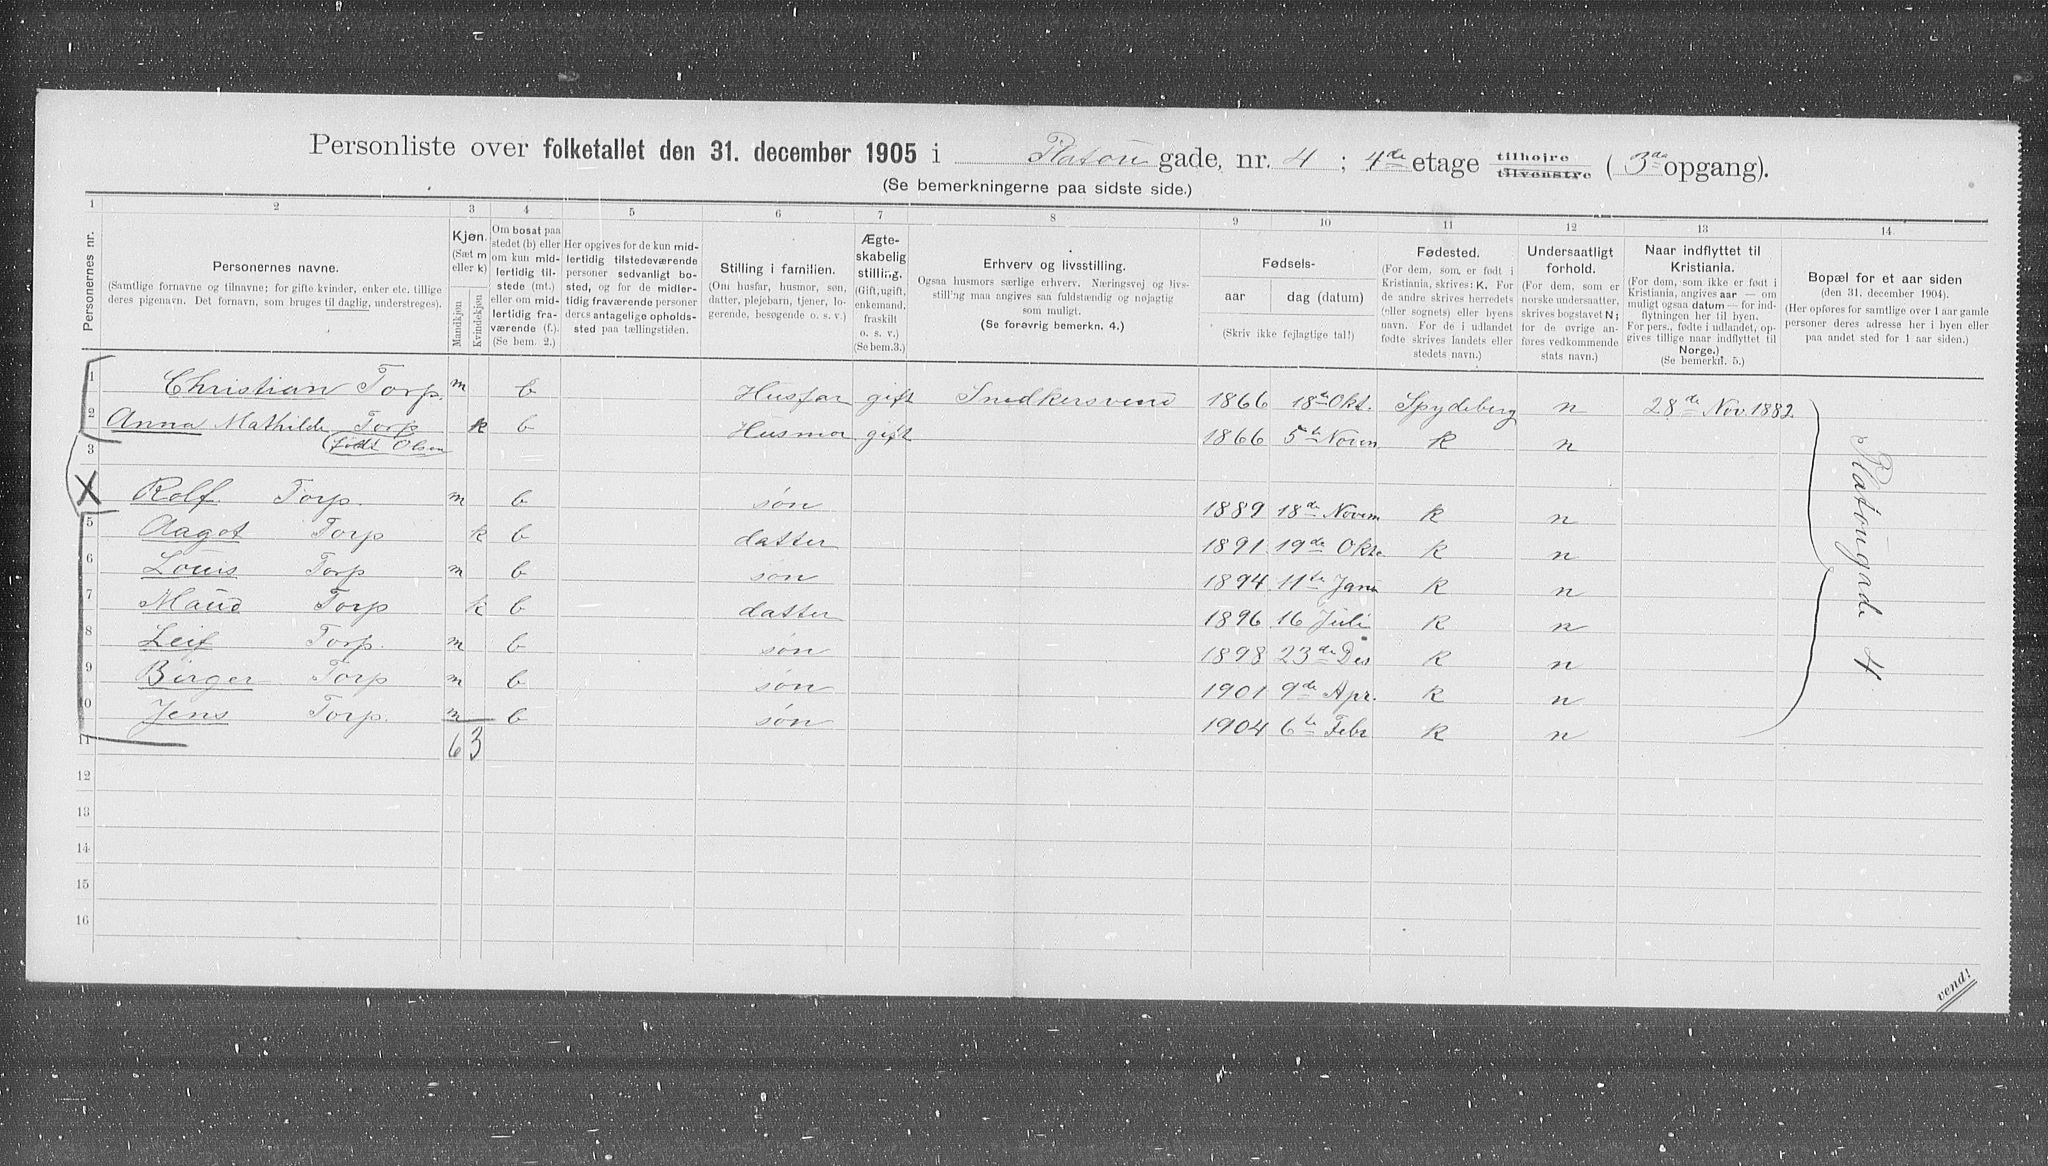 Personliste over folketallet den 31. december 1905 i Platou gade, nr. 4 ; 4de etage tilhøjre tilvenstre ( 3de opgang).
(Se bemerkningerne paa sidste side.)
1 2 3 4 5 6 7 8 9 10 11 12 13 14
Personernes nr.
Personernes navne.
(Samtlige fornavne og tilnavne; for gifte kvinder, enker etc. tillige
deres pigenavn. Det fornavn, som bruges til daglig, understreges).
Kjøn.
(Sæt m
eller k)
Mandkjøn
Kvindekjøn
Om bosat paa
stedet (b) eller
om kun mid-
lertidig til-
stede (mt.)
eller om mid-
lertidig fra-
værende (f.).
(Se bem. 2.)
Her opgives for de kun mid-
lertidig tilstedeværende
personer sedvanligt bo-
sted, og for de midler-
tidig fraværende personer
deres antagelige opholds-
sted paa tællingstiden.
Stilling i familien.
(Om husfar, husmor, søn,
datter, plejebarn, tjener, lo-
gerende, besøgende o. s. v.)
Ægte-
skabelig
stilling.
(Gift, ugift,
enkemand,
fraskilt
o. s. v.)
(Se bem.3.)
Erhverv og livsstilling.
Ogsaa husmors særlige erhverv. Næringsvej og livs-
stilling maa angives saa fuldstændig og nøjagtig
som muligt.
(Se forøvrig bemerkn. 4.)
Fødsels-
aar
dag (datum)
(Skriv ikke fejlagtige tal!)
Fødested.
(For dem, som er født i
Kristiania, skrives: K. For
de andre skrives herredets
(eller sognets) eller byens
navn. For de i udlandet
fødte skrives landets eller
stedets navn.)
Undersaatligt
forhold.
(For dem, som er
norske undersaatter,
skrives bogstavet N;
for de øvrige an-
føres vedkommende
stats navn.)
Naar indflyttet til
Kristiania.
(For dem, som ikke er født i
Kristiania, angives aar — om
muligt ogsaa datum — for ind-
flytningen her til byen.
For pers., fødte i udlandet, op-
gives tillige naar indflyttet til
Norge.)
(Se bemerkn. 5.)
Bopæl for et aar siden
(den 31. december 1904.)
(Her opføres for samtlige over 1 aar gamle
personer deres adresse her i byen eller
paa andet sted for 1 aar siden.)
1 Christian Torp. m b Husfar gift Snedkersvend 1866 18de Okt. Spydeberg n 28de Nov. 1882
2 Anna Mathilde Torp k b Husmor gift 1866 5te Novem K n
(født Olsen
3
X Rolf Torp. m b søn 1889 18de Novem K n
5 Aagot Torp k b datter 1891 19de Okt. K n
6 Louis Torp m b søn 1894 11te Janu K n
7 Maud Torp k b datter 1896 16 Juli K n
8 Leif Torp. m b søn 1898 23de Des K n
9 Birger Torp m b søn 1901 9de Apr. K n
10 Jens Torp. m b søn 1904 6te Febr K n
Platougade 4
11 6 3
12
13
14
15
16
vend!